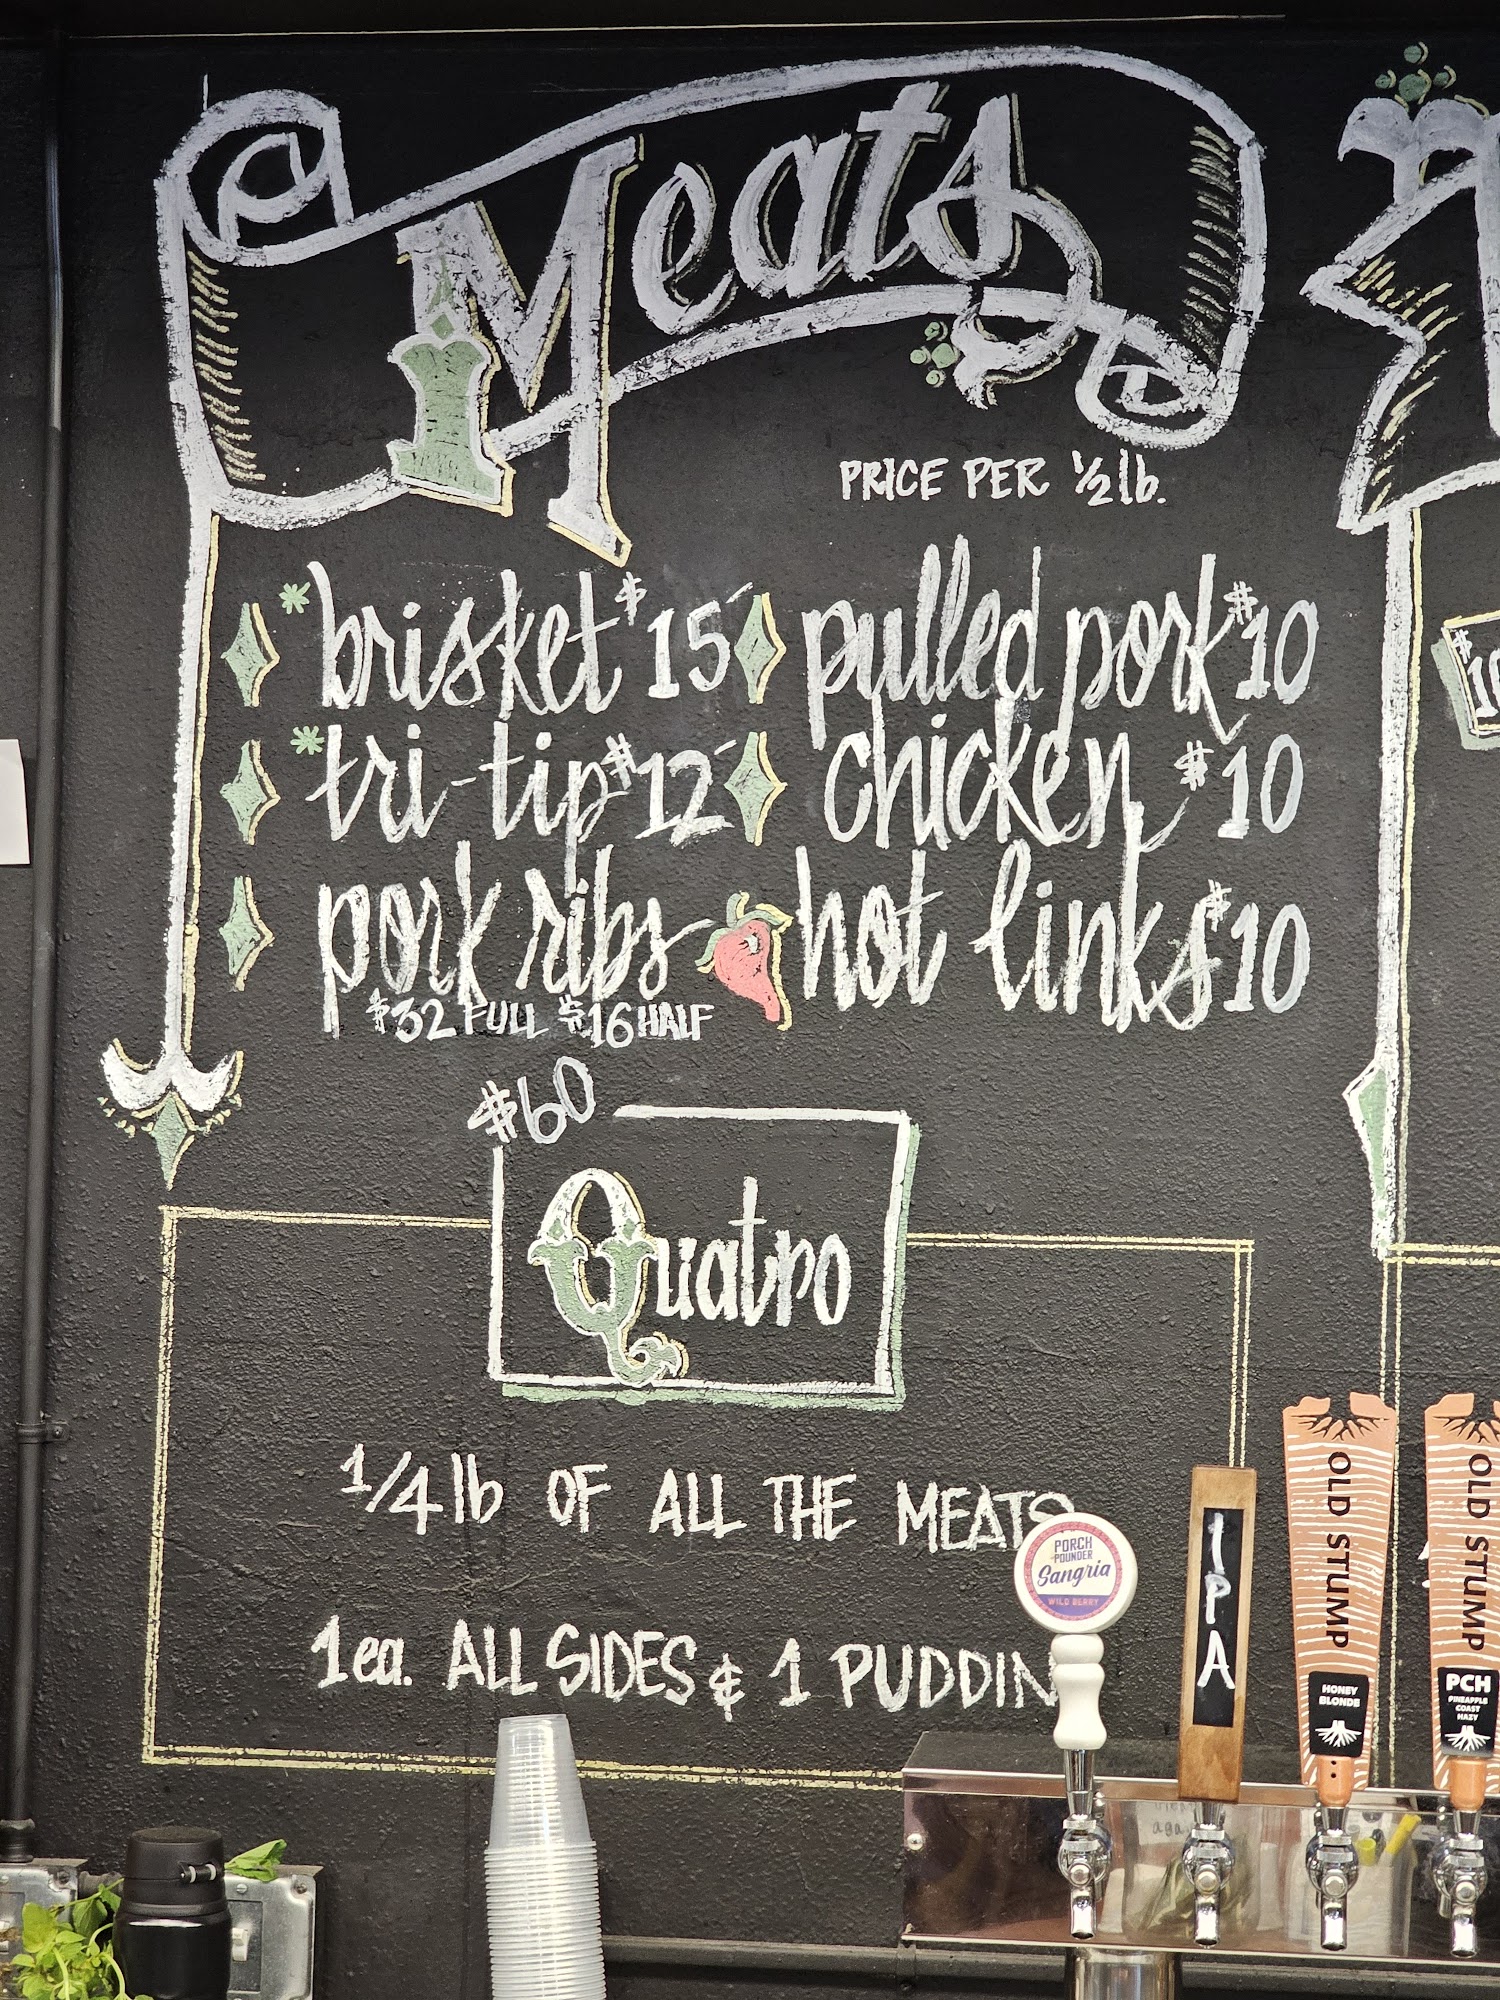 Meats
PRICE PER 1/2 lb.
*brisket $15
pulled pork $10
*tri-tip $12
chicken $10
pork ribs
$32 FULL $16 HALF
hot links $10
$60
Quatro
1/4 lb OF ALL THE MEATS
1 ea. ALL SIDES & 1 PUDDIN
PORCH
POUNDER
Sangria
WILD BERRY
IPA
OLD STUMP
HONEY
BLONDE
OLD STUMP
PCH
PINEAPPLE
COAST
HAZY